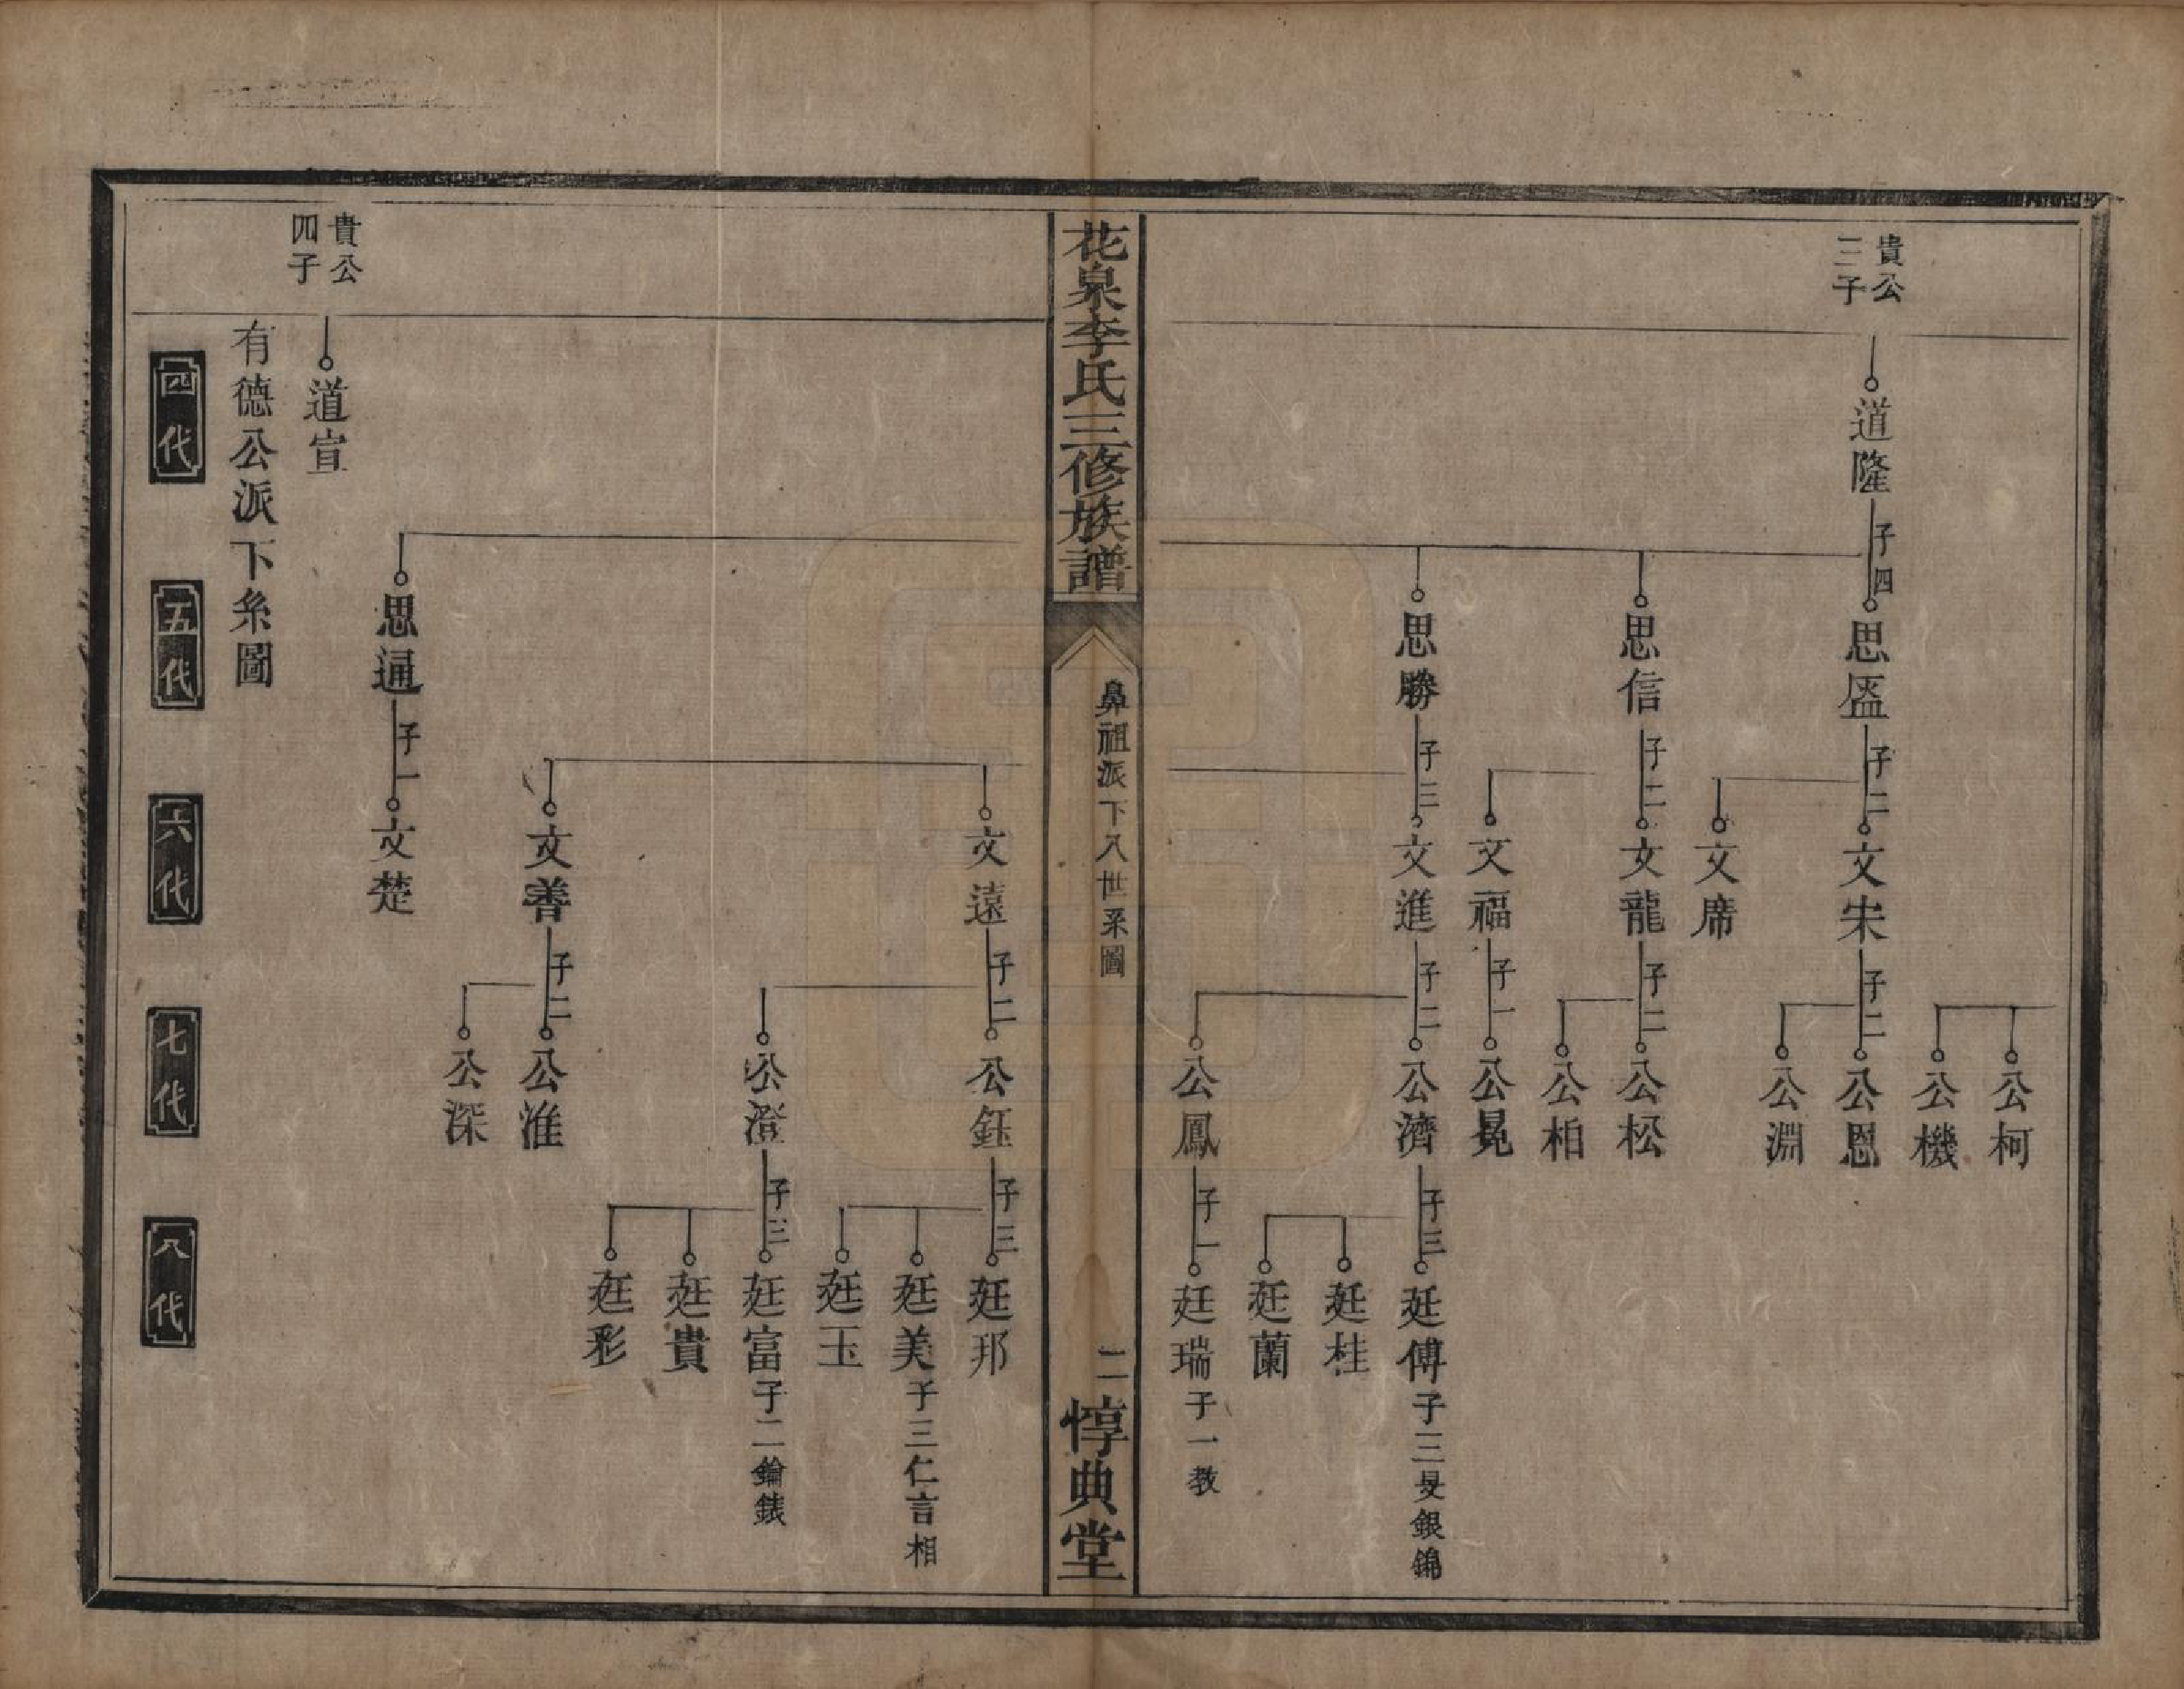 公柯
公機
貴公
三子
道隆 子四
思盛 子二
文宋 子二
公恩
公淵
文席
思信 子二
文龍 子二
公松
公柏
文福 子一
公晃
思勝 子三
文進 子二
公濟 子三
廷傅 子三 旻銀錦
廷桂
廷蘭
公鳳 子一
廷瑞 子一教
花泉李氏三修族譜
鼻祖派下八世系圖
二
惇典堂
文遠 子二
公鈺 子三
廷邦
廷美 子三仁言相
廷玉
公澄 子三
廷富 子二鑰錶
廷貴
廷彩
文善 子二
公淮
公深
思通 子一
文楚
貴公
四子
道宣
有德公派下糸圖
四代
五代
六代
七代
八代